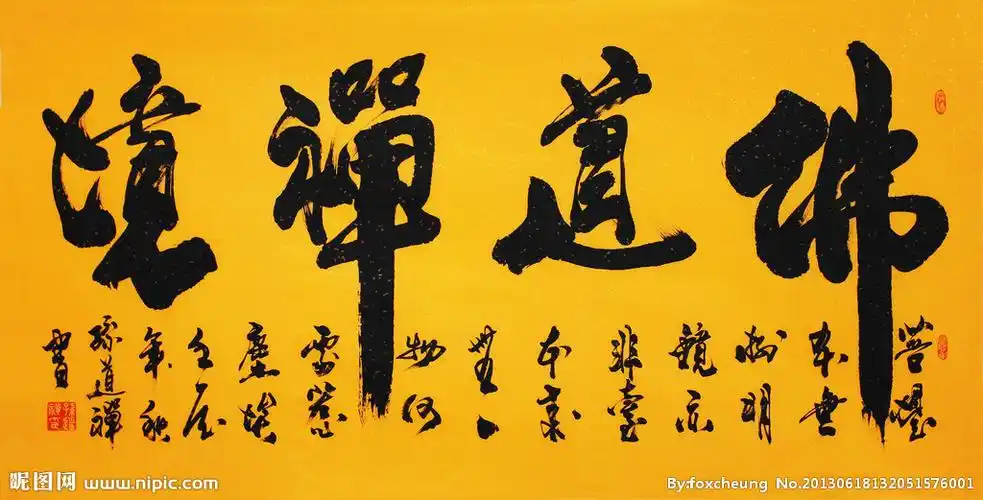 佛道禪境
菩提
本無
樹明
鏡亦
非臺
本來
無一
物何
處惹
塵埃
壬辰
年秋
孫道禪
書
昵图网 www.nipic.com
By:foxcheung No.20130618132051576001